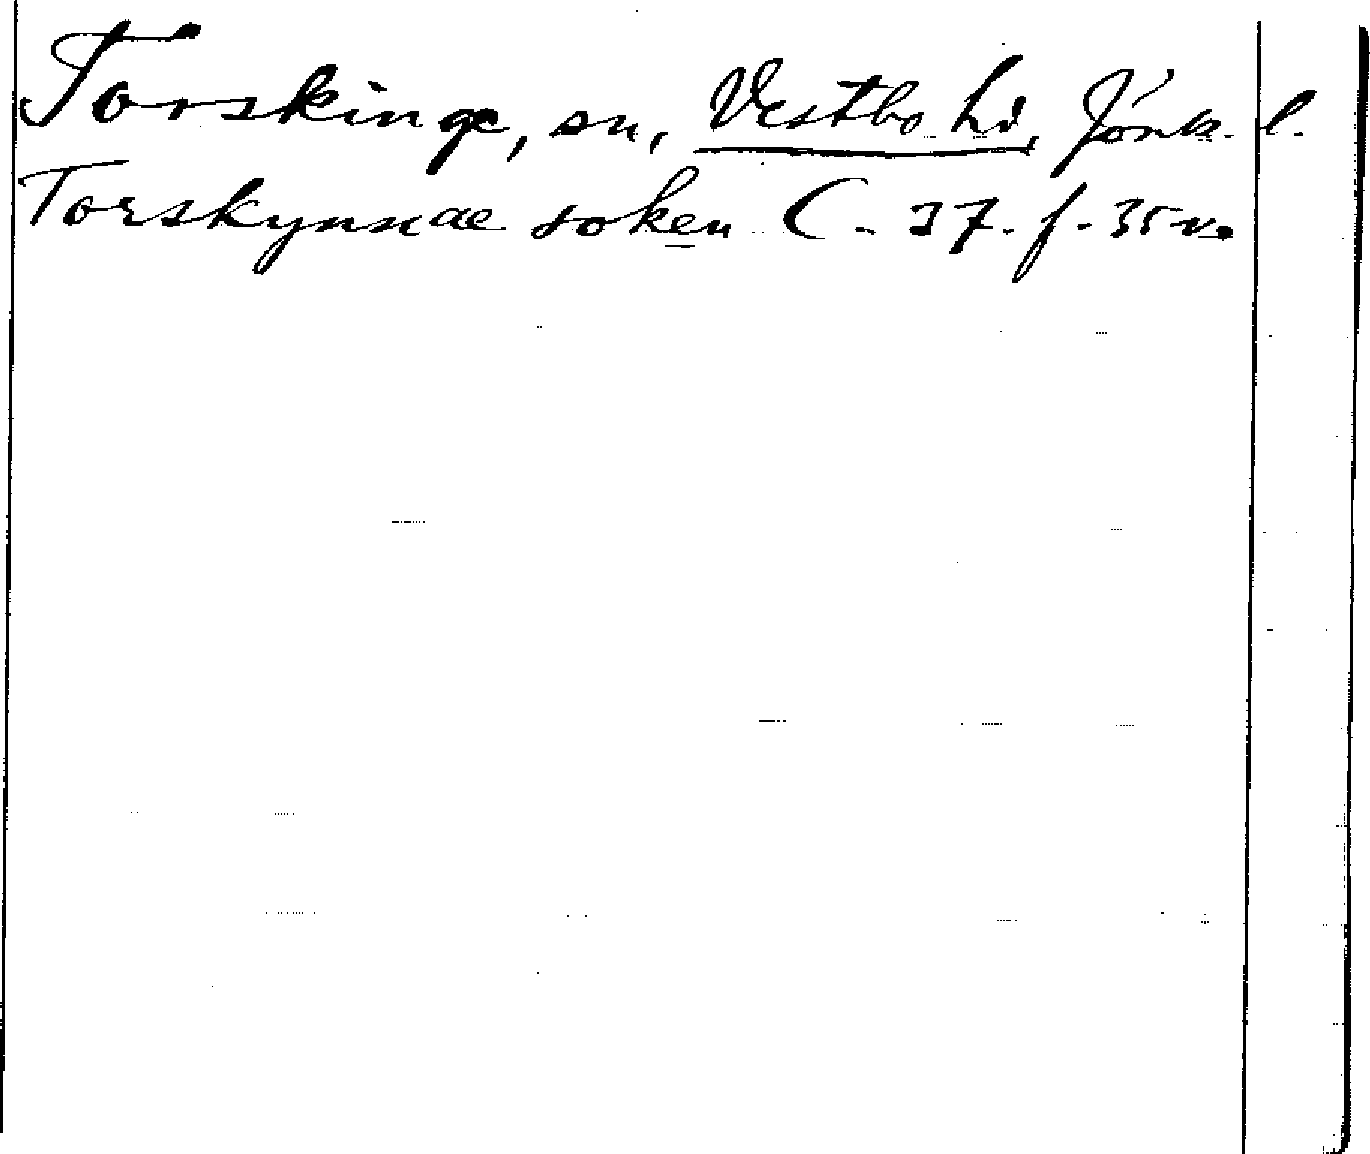 Torskinge, sn, Vestbo hd, Jönk. l.
Torskynnæ soken C. 37. f. 35 v.